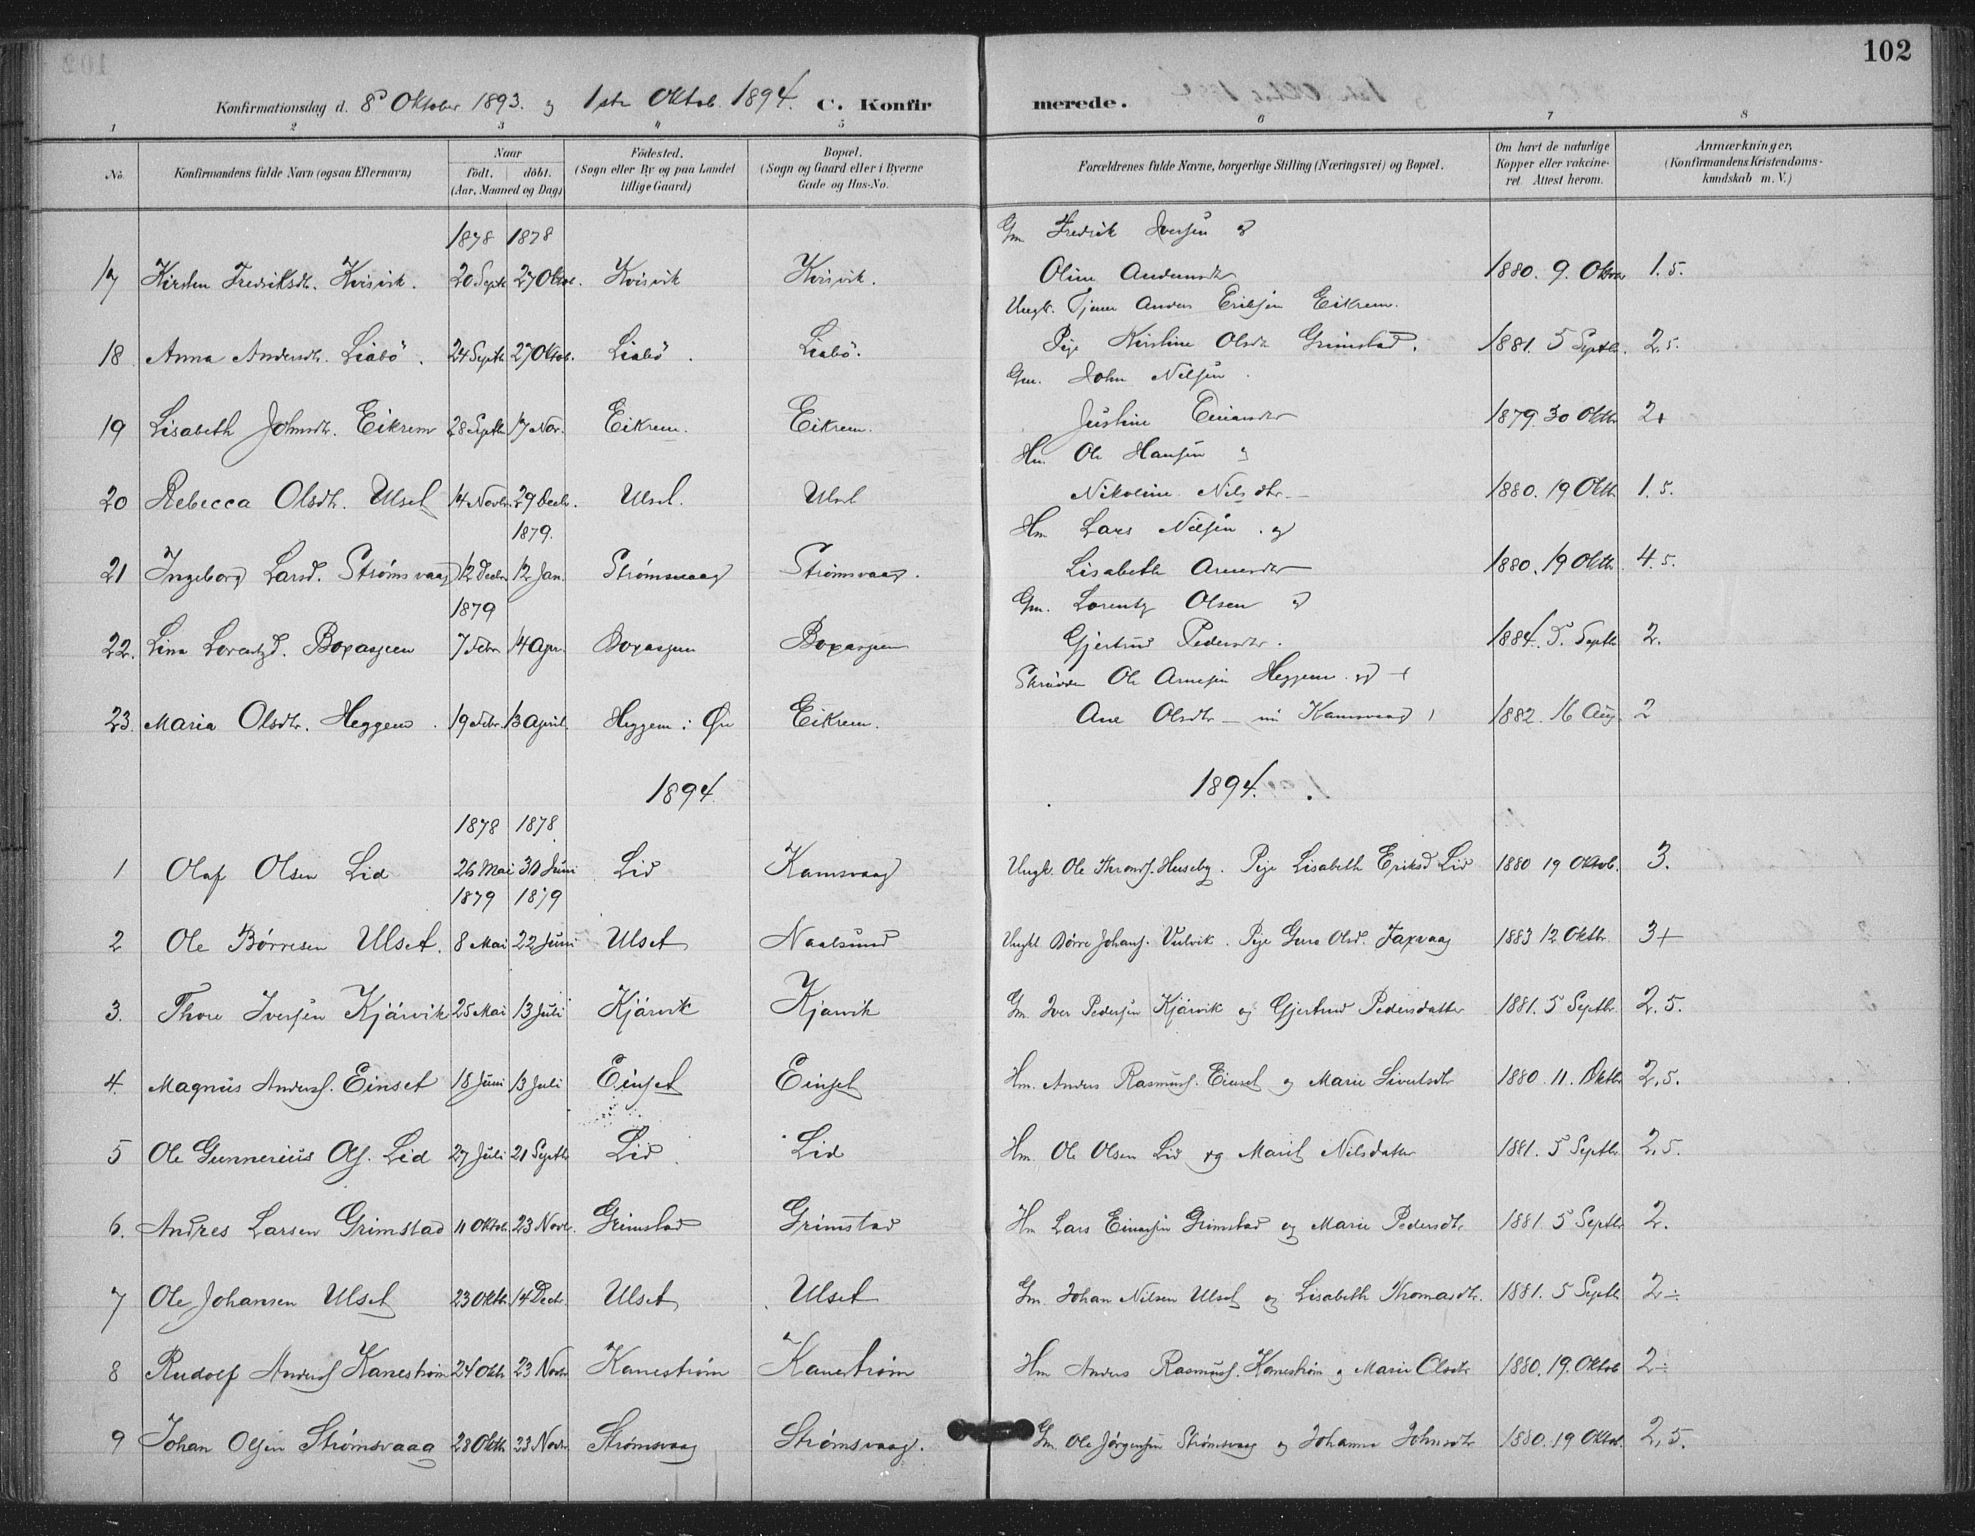 102
Konfirmationsdag d. 8d Oktober 1893. og 1ste Oktob. 1894. C. Konfirmerede.
1 2 3 4 5 6 7 8
No. Konfirmandens fulde Navn (ogsaa Efternavn) Naar födt. döbt. (Aar, Maaned og Dag) Födested. (Sogn eller By og paa Landet tillige Gaard) Bopæl. (Sogn og Gaard eller i Byerne Gade og Hus-No. Forældrenes fulde Navne, borgerlige Stilling (Næringsvei) og Bopæl. Om havt de naturlige Kopper eller vakcineret. Attest herom. Anmærkninger, (Konfirmandens Kristendomskundskab m. V.)
1878 1878 Gm Fredrik Iversen og
17 Kirsten Fredriksdtr. Kvisvik. 20 Septr 27 Oktob. Kvisvik Kvisvik. Oline Andersdtr 1880. 9. Oktbr 1.5.
Ungk. Tjener Anders Eriksen Eikrem.
18 Anna Andersdtr. Liabö. 24 Septbr 27 Oktob. Liabö. Liabö. Pige Kirstine Olsdtr Grimstad. 1881. 5 Septbr. 2.5.
Gm. John Nilsen.
19 Lisabeth Johnsdtr. Eikrem 28 Septbr 17 Nov. Eikrem. Eikrem. Justine Einarsdtr 1879. 30 Oktbr 2+
Hm. Ole Hansen og
20 Rebecca Olsdtr. Ulset 14 Novbr. 29 Decbr. Ulset. Ulset Nikoline Nilsdtr. 1880. 19 Oktb. 1.5.
1879. Hm Lars Nilsen. og
21 Ingeborg Larsd. Strømsvaag 12 Decbr 12 Jan. Strømsvaag Strømsvaag. Lisabeth Arnesdtr 1880. 19 Oktbr. 4.5.
1879 Gm. Lorentz Olsen og
22. Lina Lorentzd. Boxaspen 7 Febr 14 Apr. Boxaspen Boxaspen Gjertrud Pedersdtr. 1884. 5. Septbr 2.
Ole Arnesen Heggem og
23. Maria Olsdtr. Heggem. 19 Febr. 13 April. Heggem i Øre Eikrem. Ane Olsdtr 1882. 16 Aug. 2
1894 1894.
1878 1878
1 Olaf Olsen Lid 26 Mai 30 Juni Lid Kamsvaag Ungk. Ole Thronds. Huseby. Pige Lisabeth Eriksd Lid 1880 19 Oktob. 3.
1879 1879
2 Ole Børresen Ulset. 8 Mai 22 Juni Ulset Naalsund Ungkl Børre Johans. Vulvik. Pige Guro Olsd. Taxvaag 1883 12 Oktbr. 3+
3. Thore Iversen Kjärvik 25 Mai 13 Juli Kjärvik Kjärvik Gm Iver Pedersen Kjärvik og Gjertrud Pedersdatter 1881. 5 Septbr. 2.5.
4. Magnus Anders. Einset 18 Juni 13 Juli Einset Einset Hm. Anders Rasmus. Einset og Marie Sivertsdtr 1880 11. Oktbr 2.5.
5 Ole Gunnerius Ols. Lid 27 Juli 21 Septbr Lid. Lid Hm. Ole Olsen Lid og Marit Nilsdatter 1881. 5 Septbr 2.5.
6. Andres Larsen Grimstad 11 Oktob. 23 Novbr. Grimstad Grimstad Hm Lars Einarsen Grimstad og Marie Pedersdtr. 1881. 5 Septbr 2.
7 Ole Johansen Ulset 23 Oktbr. 14 Decbr. Ulset Ulset Gm. Johan Nilsen Ulset og Lisabeth Thomasdtr. 1881. 5 Septbr 2÷
8 Rudolf Anders. Kanestrøm 24 Oktb. 23 Novbr Kanestrøm Kanestrøm Hm Anders Rasmus. Kanestrøm og Marie Olsdtr 1880. 19. Oktob 2÷
9 Johan Olsen Strømsvaag 28 Oktbr 23 Novbr. Strømsvaag Strømsvaag. Gm. Ole Jörgensen Strømsvaag og Johanna Johnsdtr 1880. 19 Oktob. 2.5.